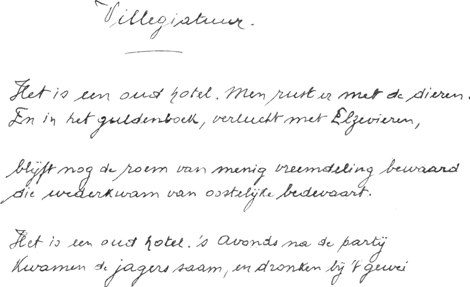 Villegiatuur.
Het is een oud hotel. Men rust er met de dieren.
En in het guldenboek, verlucht met Elzevieren,
blijft nog de roem van menig vreemdeling bewaard
die wederkwam van oostelijke bedevaart.
Het is een oud hotel. 's Avonds na de partij
kwamen de jagers saam, en dronken bij 't gewei